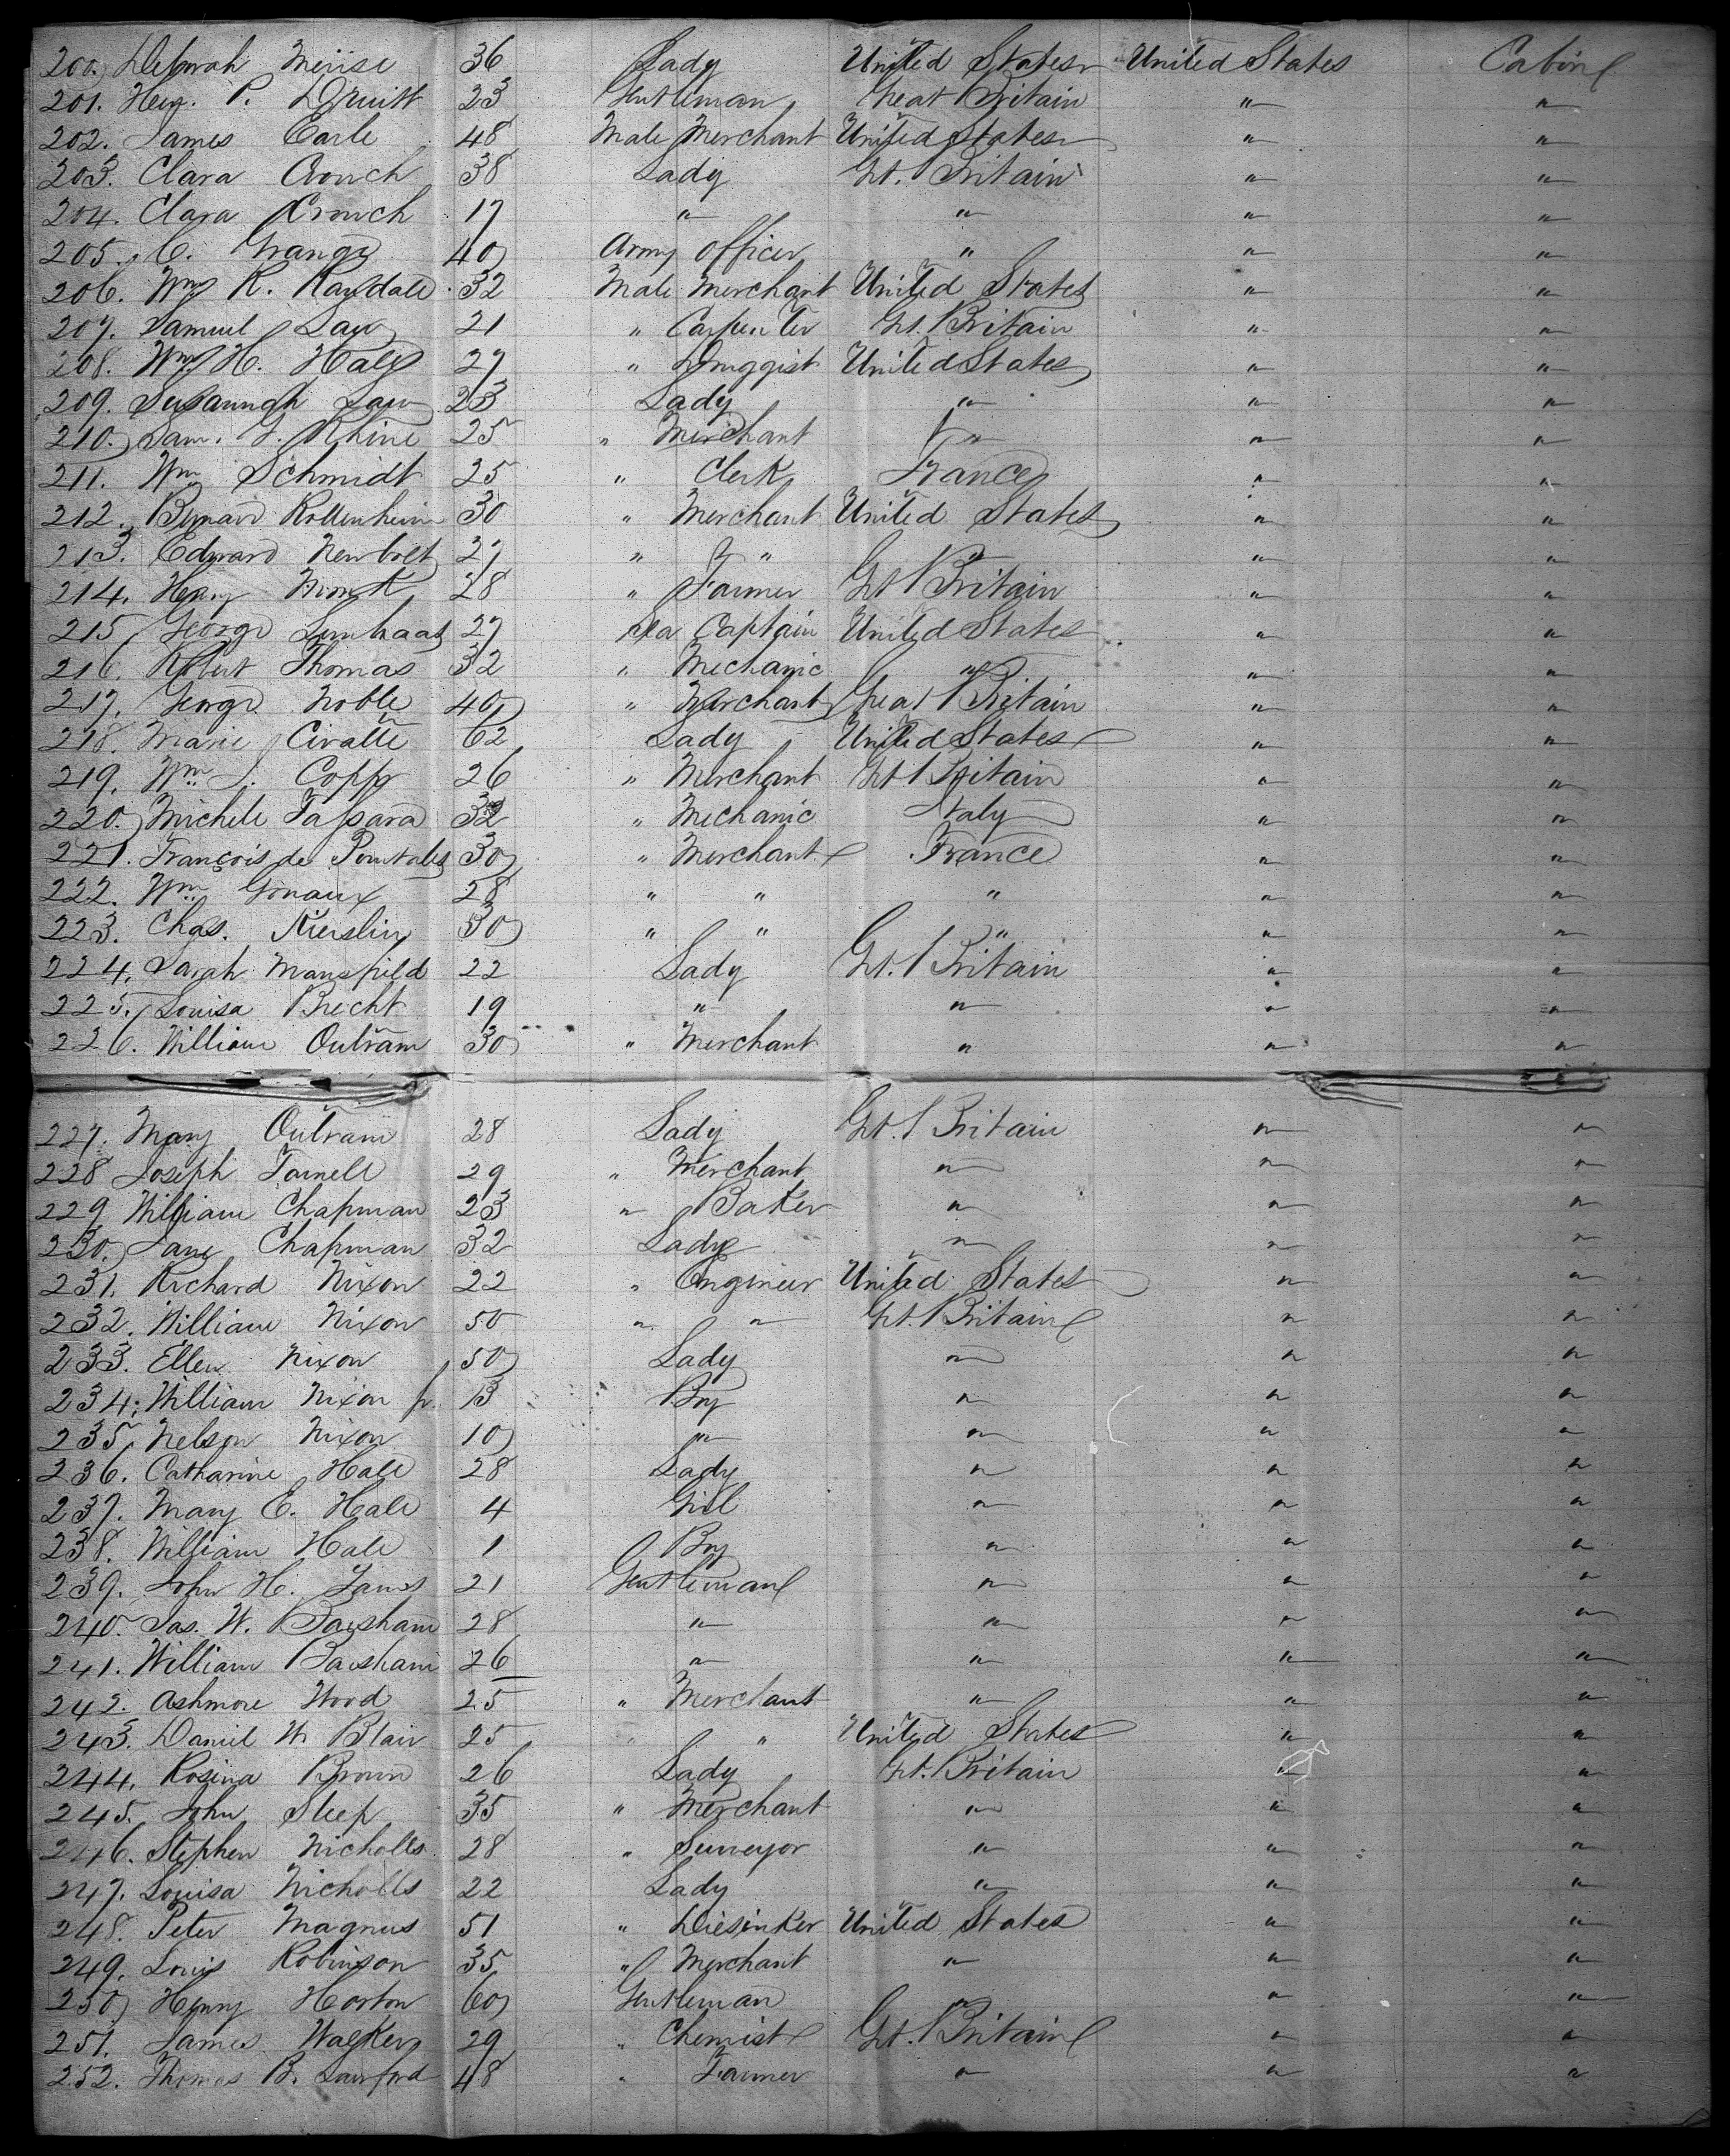 200. Deborah 36 Lady United States United States Cabin
201. Hen. P. Druitt 23 Gentleman Great Britain " "
202. James Earle 48 Male Merchant United States " "
203. Clara Crouch 38 Lady Gt. Britain " "
204. Clara Crouch 17 " " " "
205. C. Grange 40 Army Officer " " "
206. Wm R. 32 Male Merchant United States " "
207. Samuel Law 21 " Carpenter Gt. Britain " "
208. Wm H. Hale 27 " Druggist United States " "
209. Susannah Law 23 Lady " " "
210. Sam. G. Rhine 25 " Merchant " " "
211. Wm Schmidt 25 " Clerk France " "
212. Bernard 30 " Merchant United States " "
213. Edward Newbolt 27 " " " " "
214. Henry 28 " Farmer Gt Britain " "
215 George 27 Sea Captain United States " "
216. Robert Thomas 32 " Mechanic " " "
217. George Noble 40 " Merchant Great Britain " "
218. Marie Civatte 62 Lady United States " "
219. Wm J. Copp 26 " Merchant Gt Britain " "
220. Michele Tassara 32 " Mechanic Italy " "
221. François de Pourtales 30 " Merchant France " "
222. Wm 28 " " " " "
223. Chas. 30 " " " " "
224. Sarah Mansfield 22 Lady Gt. Britain " "
225. Louisa Brecht 19 " " " "
226. William Outram 30 " Merchant " " "
227. Mary Outram 28 Lady Gt. Britain " "
228 Joseph 29 " Merchant " " "
229 William Chapman 23 " Baker " " "
230. Jane Chapman 32 Lady " " "
231. Richard Nixon 22 " Engineer United States " "
232. William Nixon 50 " " Gt. Britain " "
233. Ellen Nixon 50 Lady " " "
234. William Nixon jr. 13 Boy " " "
235. Nelson Nixon 10 " " " "
236. Catharine Hale 28 Lady " " "
237. Mary E. Hale 4 Girl " " "
238. William Hale 1 Boy " " "
239. John H. James 21 Gentleman " " "
240. Jas. W. 28 " " " "
241. William 26 " " " "
242. Ashmore Wood 25 " Merchant " " "
243. Daniel W. Blair 25 " " United States " "
244. Rosina Brown 26 Lady Gt. Britain " "
245. John Sleep 35 " Merchant " " "
246. Stephen Nicholls 28 " Surveyor " " "
247. Louisa Nicholls 22 Lady " " "
248. Peter Magnus 51 " Diesinker United States " "
249. Louis Robinson 35 " Merchant " " "
250 Henry Horton 60 Gentleman " " "
251. James Walker 29 " Chemist Gt. Britain " "
252. Thomas B. 48 " Farmer " " "